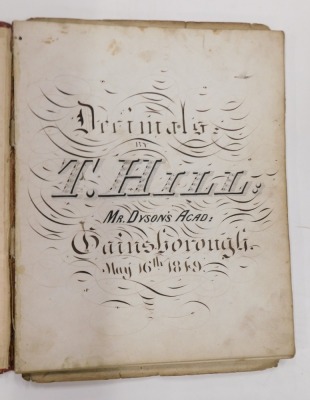 Decimals:
BY
T. HILL:
MR. DYSON'S ACAD:
Gainsborough.
May 16th 1849.